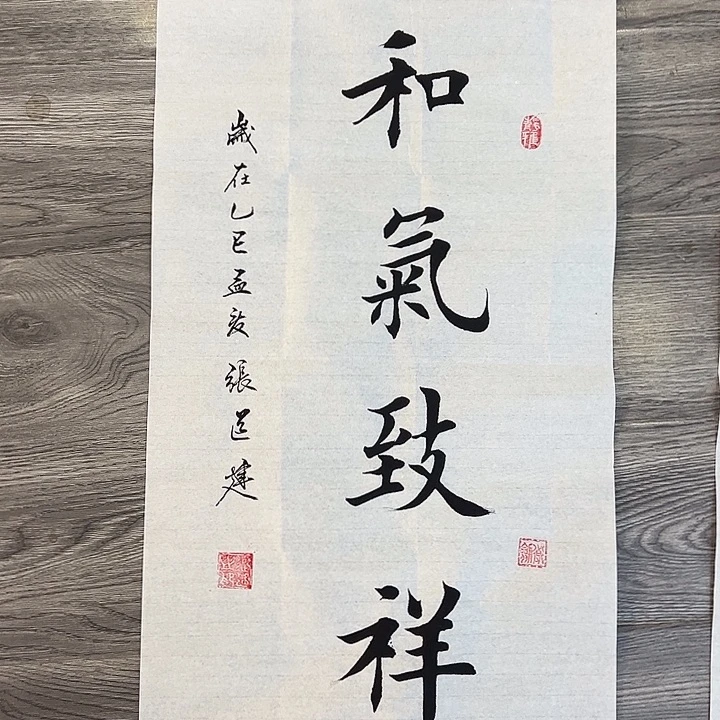 和氣致祥
歲在乙巳孟夏張道建